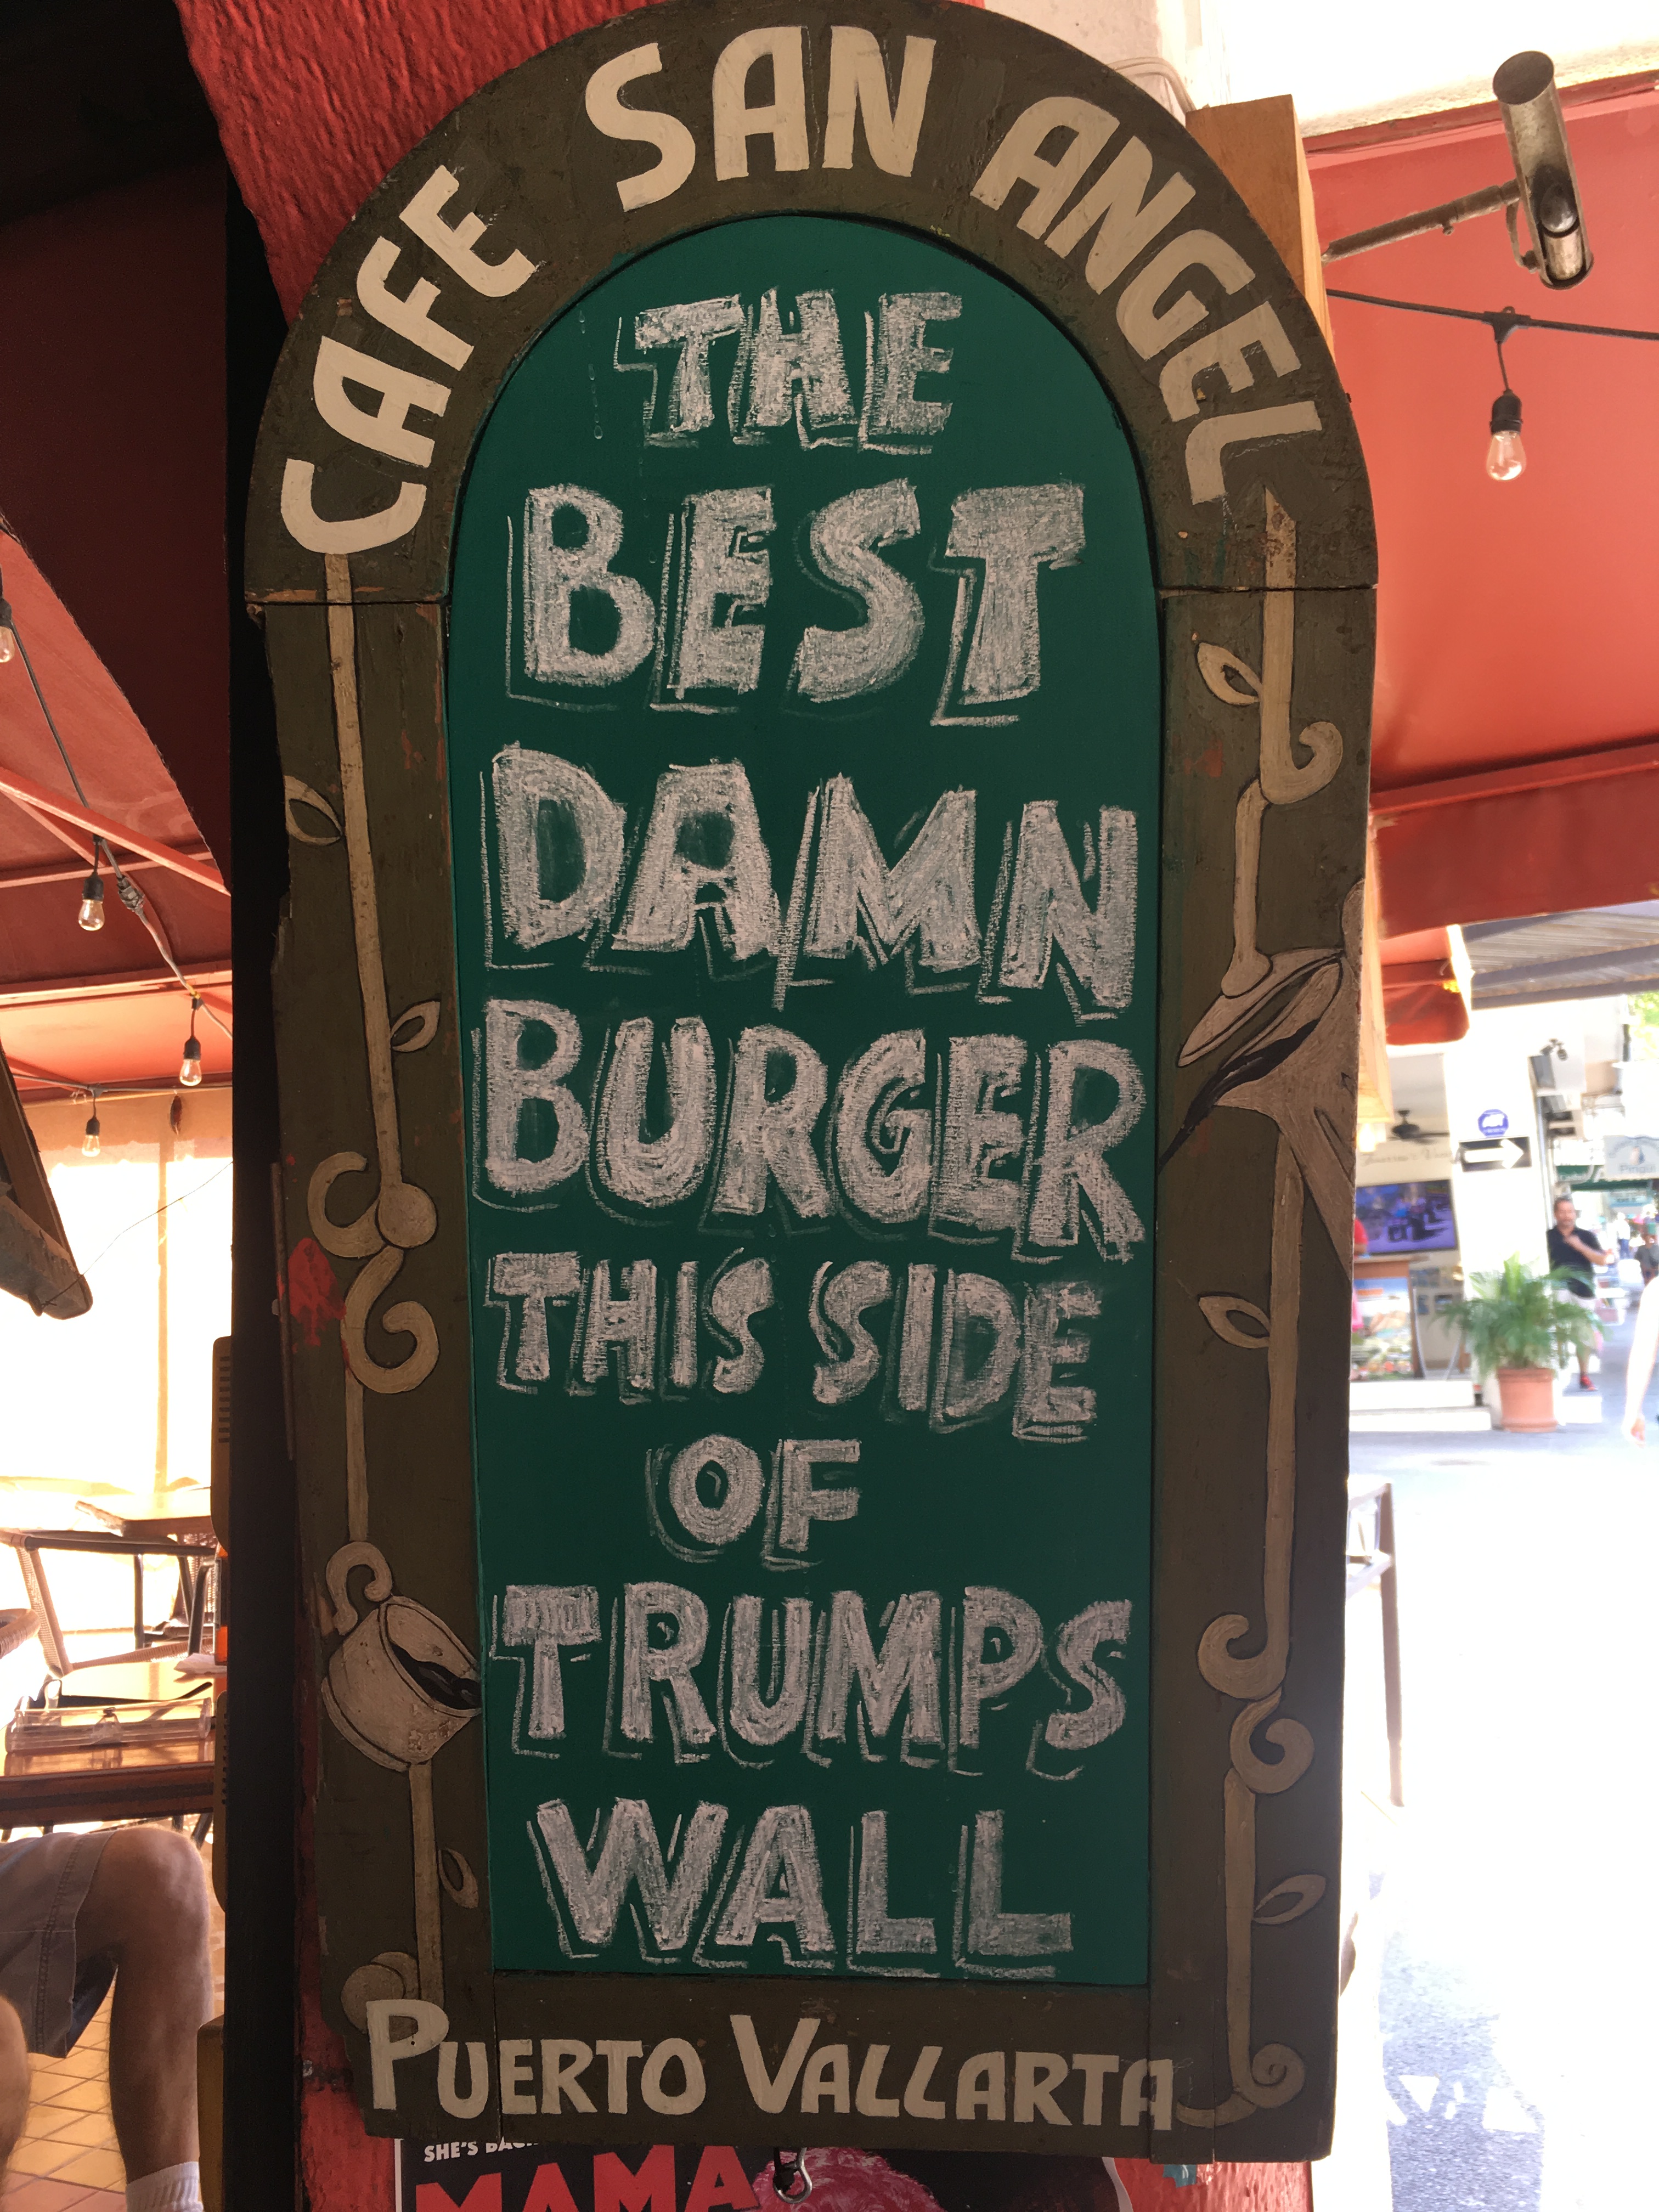 CAFE SAN ANGEL
THE
BEST
DAMN
BURGER
THIS SIDE
OF
TRUMPS
WALL
PUERTO VALLARTA
SHE'S
MAMA